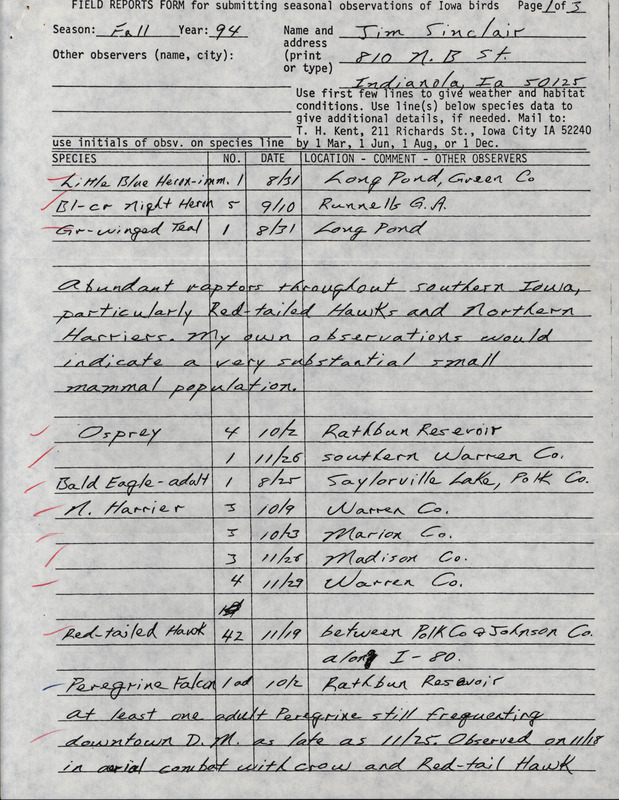 FIELD REPORTS FORM for submitting seasonal observations of Iowa birds Page 1 of 3
Season: Fall Year: 94 Name and address (print or type) Jim Sinclair
Other observers (name, city): 810 N. B St.
Indianola, Ia 50125
Use first few lines to give weather and habitat
conditions. Use line(s) below species data to
give additional details, if needed. Mail to:
T. H. Kent, 211 Richards St., Iowa City IA 52240
use initials of obsv. on species line by 1 Mar, 1 Jun, 1 Aug, or 1 Dec.
SPECIES NO. DATE LOCATION - COMMENT - OTHER OBSERVERS
Little Blue Heron-imm. 1 8/31 Long Pond, Green Co
Bl-cr night Heron 5 9/10 Runnells G.A.
Gr-winged Teal 1 8/31 Long Pond
Abundant raptors throughout southern Iowa,
particularly Red-tailed Hawks and Northern
Harriers. My own observations would
indicate a very substantial small
mammal population.
Osprey 4 10/2 Rathbun Resevoir
1 11/26 southern Warren Co.
Bald Eagle-adult 1 8/25 Saylorville Lake, Polk Co.
N. Harrier 3 10/9 Warren Co.
3 10/23 Marion Co.
3 11/26 Madison Co.
4 11/29 Warren Co.
Red-tailed Hawk 42 11/19 between Polk Co & Johnson Co.
along I-80.
Peregrine Falcon 1 ad 10/2 Rathbun Resevoir
at least one adult Peregrine still frequenting
downtown D.M. as late as 11/25. Observed on 11/18
in aerial combat with crow and Red-tail Hawk